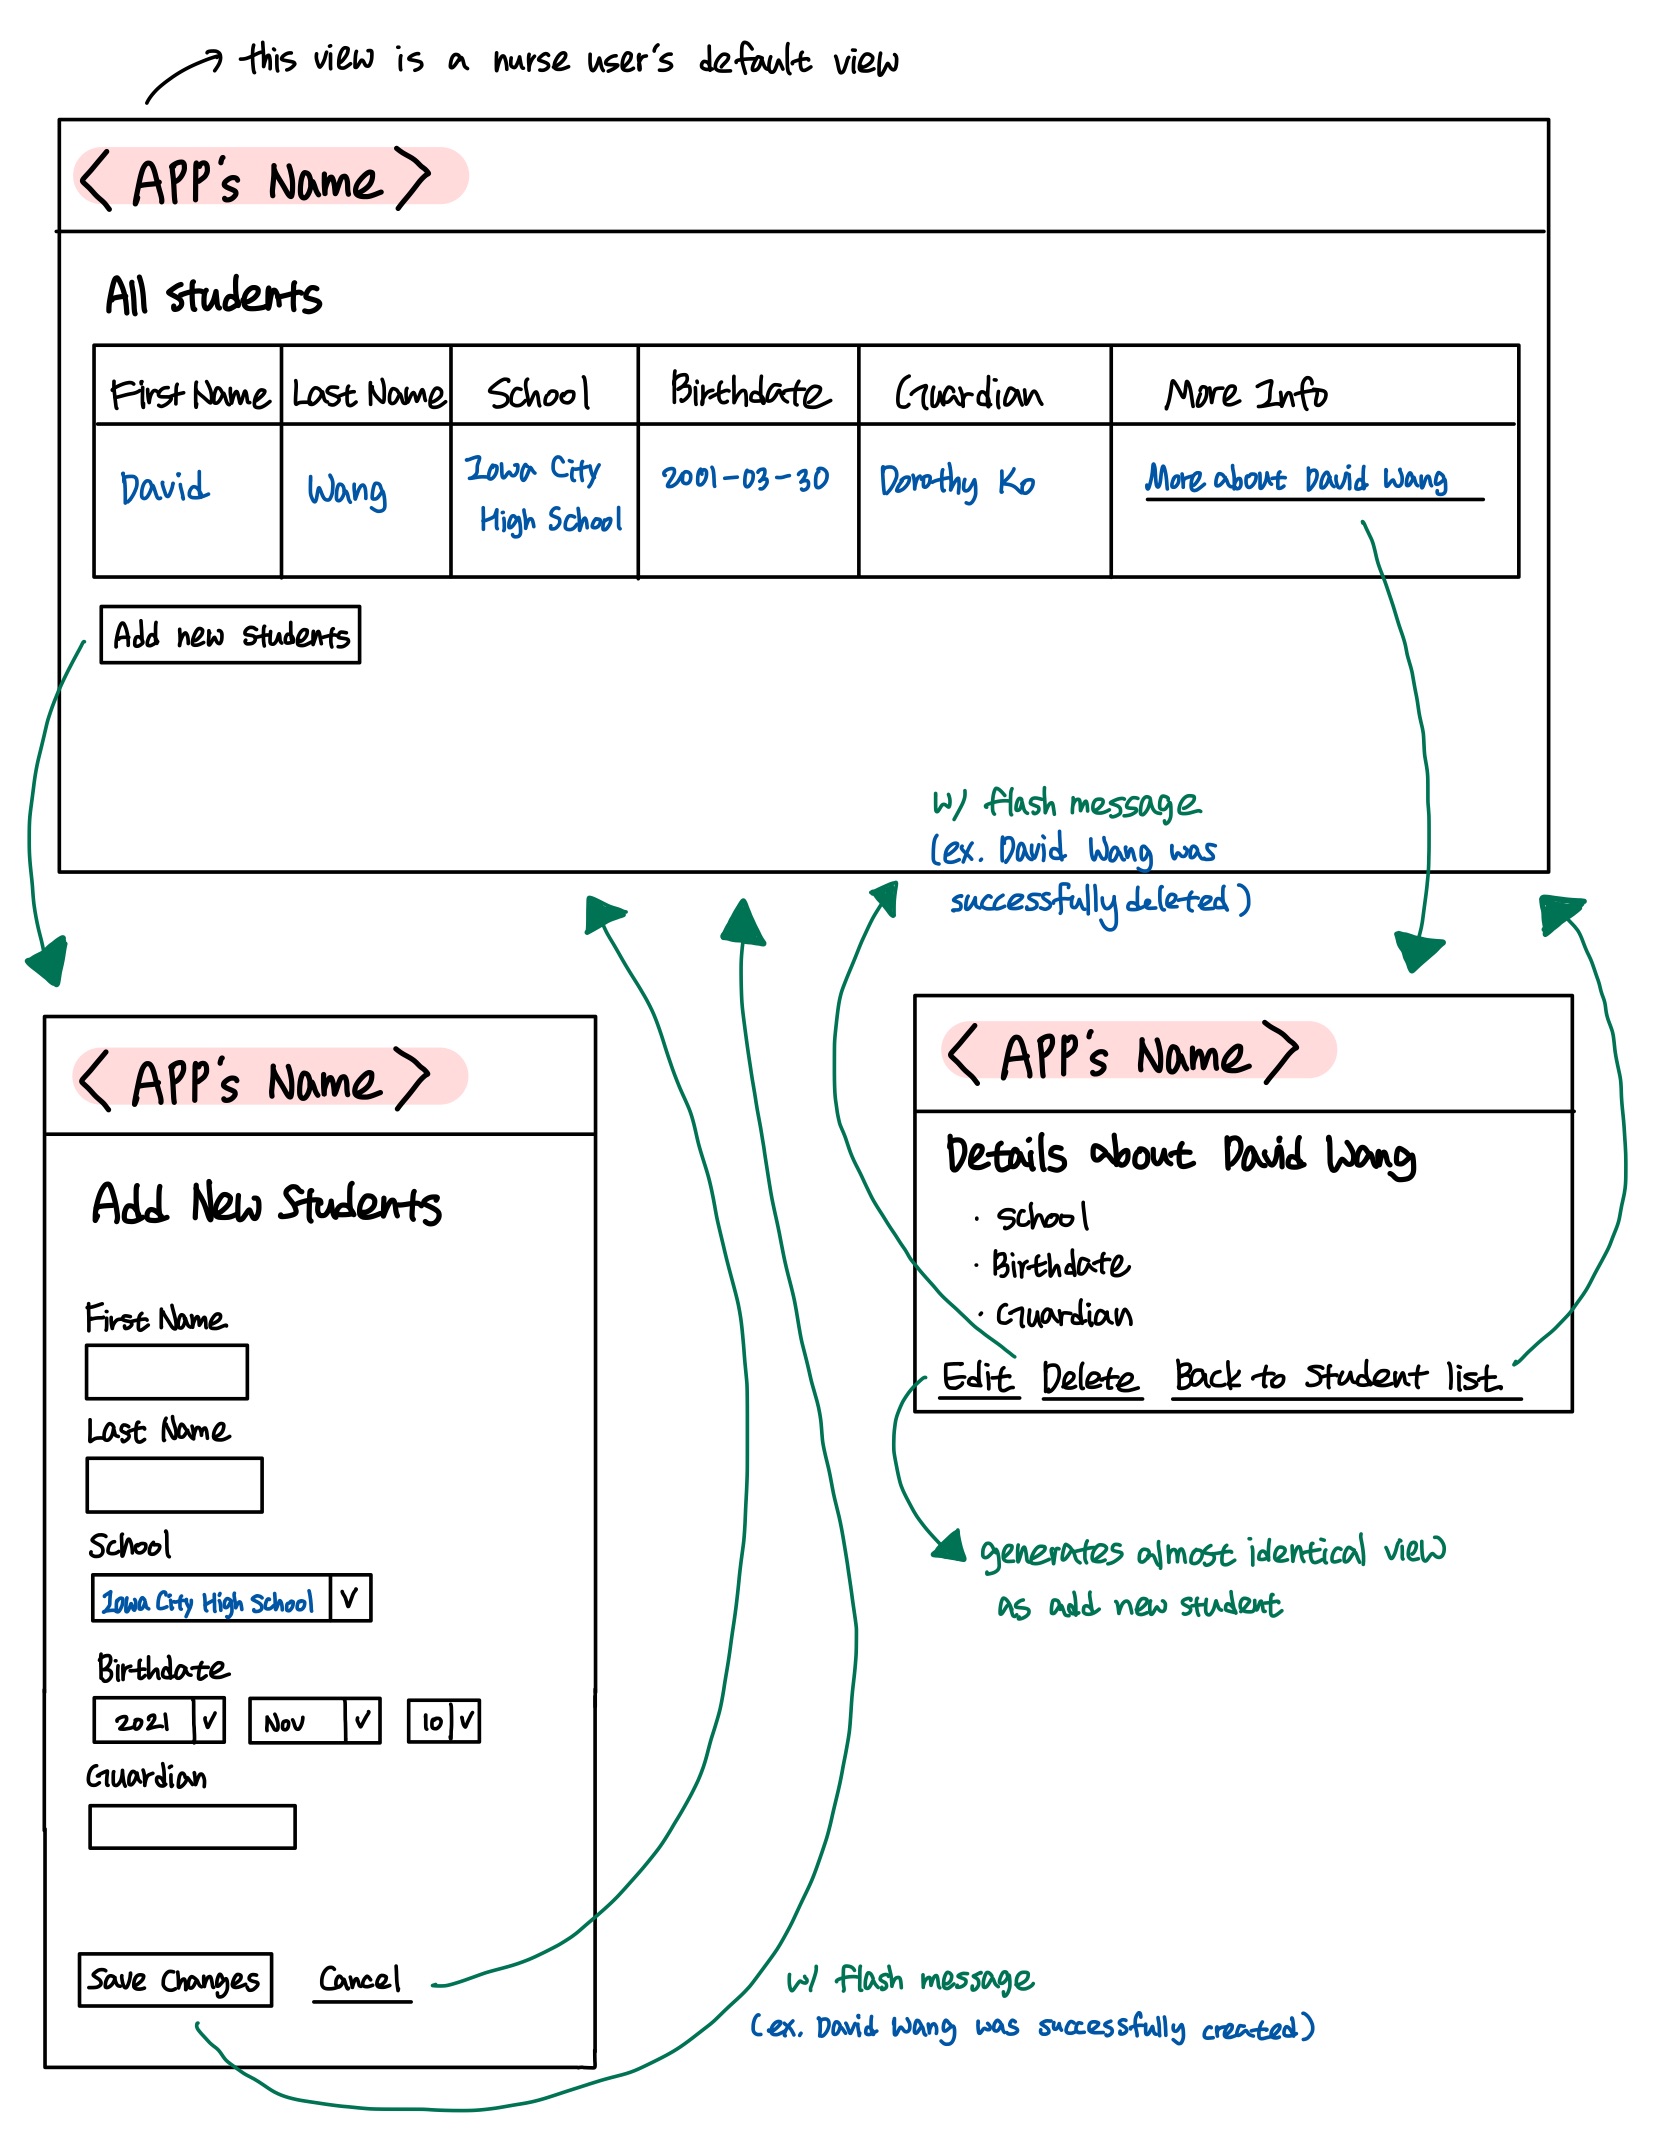 this view is a nurse user's default view
< APP's Name >
All students
First Name Last Name School Birthdate Guardian More Info
David Wang Iowa City High School 2001-03-30 Dorothy Ko More about David Wang
Add new students
w/ flash message
(ex. David Wang was
successfully deleted)
< APP's Name >
Add New Students
First Name
Last Name
School
Iowa City High School
Birthdate
2021 Nov 10
Guardian
Save Changes Cancel
< APP's Name >
Details about David Wang
· School
· Birthdate
· Guardian
Edit Delete Back to Student list
generates almost identical view
as add new student
w/ flash message
(ex. David Wang was successfully created)